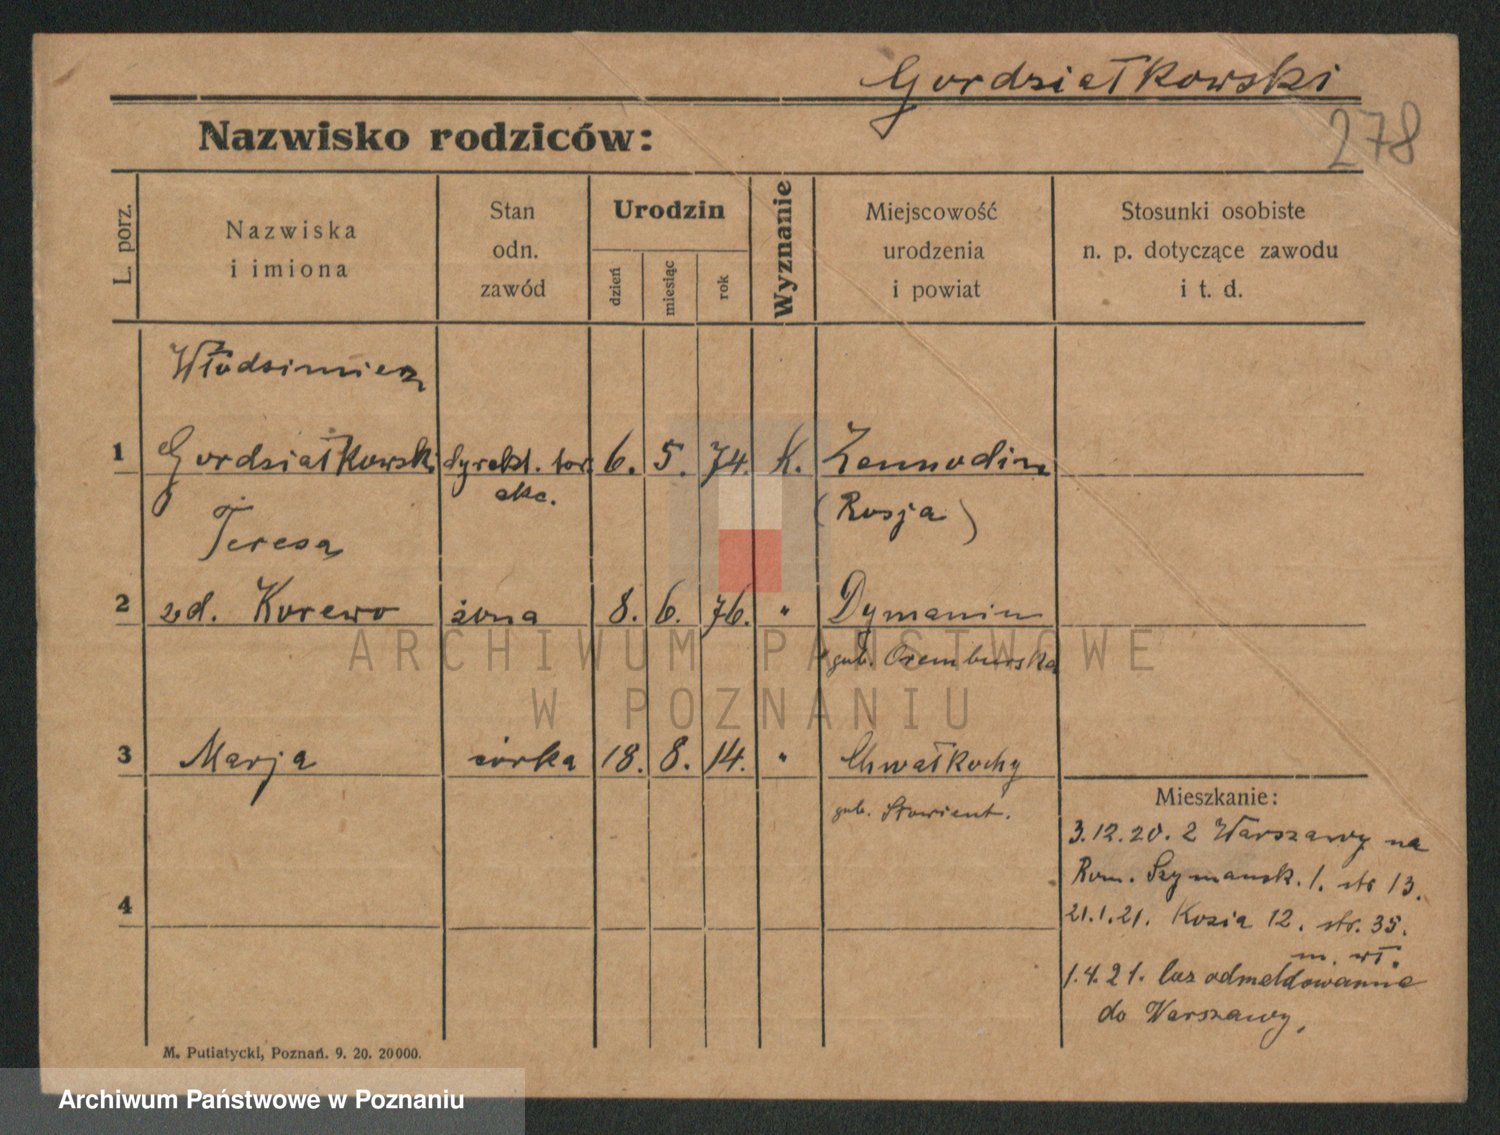 Gordziałkowski
278
Nazwisko rodziców:
L. porz.
Nazwiska
i imiona
Stan
odn.
zawód
Urodzin
dzień
miesiąc
rok
Wyznanie
Miejscowość
urodzenia
i powiat
Stosunki osobiste
n. p. dotyczące zawodu
i t. d.
Włodzimierz
1 Gordziałkowski dyrekt. tow. 6. 5. 74. K.
akc.
(Rosja)
Teresa
2 zd. Korewo żona 8. 6. 76. "
gub. Oremburska
3 Marja córka 18. 8. 14. " Chwałkochy
gub.
4
Mieszkanie:
3.12.20. z Warszawy na
Rom. Szymansk. 1. str 13.
21.1.21. Kozia 12. str. 35.
m. wł.
1.4.21. bez odmeldowanie
do Warszawy,
M. Putiatycki, Poznań. 9. 20. 20000.
ARCHIWUM PAŃSTWOWE
W POZNANIU
Archiwum Państwowe w Poznaniu